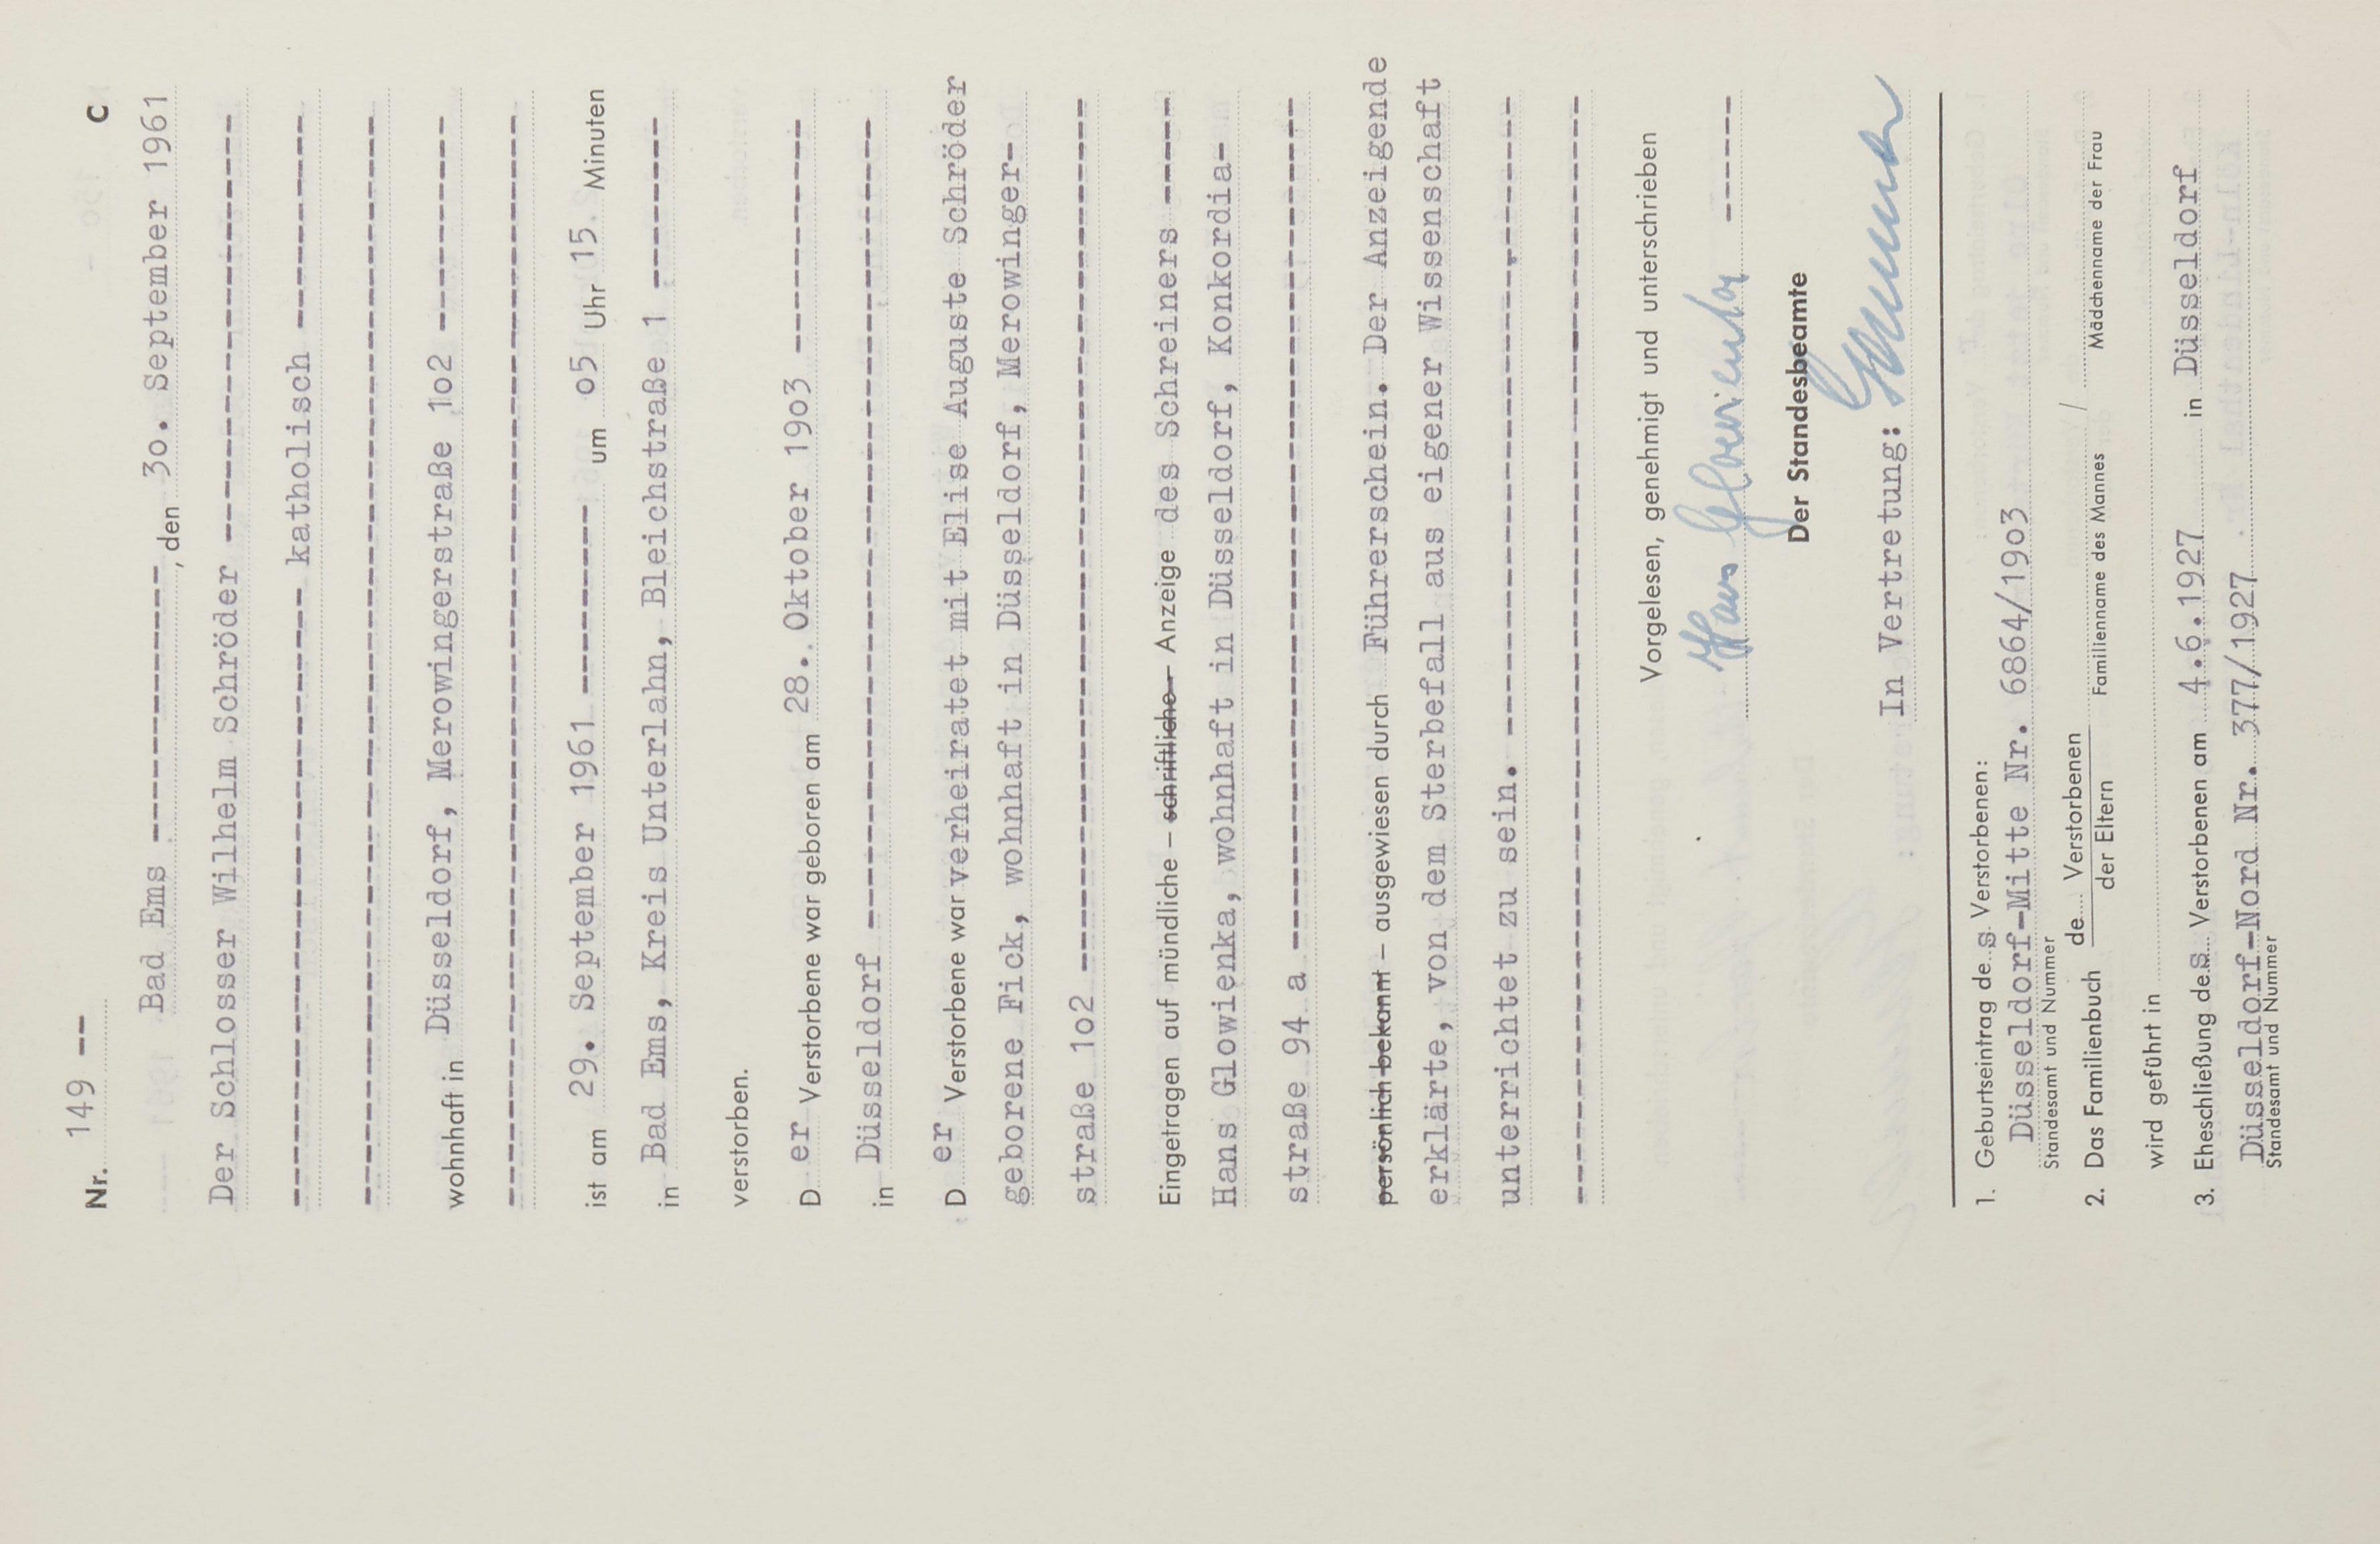 Nr. 149 -- C
Bad Ems --------------, den 3o. September 1961
Der Schlosser Wilhelm Schröder ----------------------
---------------------------- katholisch -----------
--------------------------------------------------------
wohnhaft in Düsseldorf, Merowingerstraße 1o2 -----------
--------------------------------------------------------
ist am 29. September 1961 ---------- um o5 Uhr 15 Minuten
in Bad Ems, Kreis Unterlahn, Bleichstraße 1 ---------
verstorben.
D er Verstorbene war geboren am 28. Oktober 19o3 ------------
in Düsseldorf ----------------------------------------
D er Verstorbene war verheiratet mit Elise Auguste Schröder
geborene Fick, wohnhaft in Düsseldorf, Merowinger-
straße 1o2 ---------------------------------------------
Eingetragen auf mündliche – schriftliche – Anzeige des Schreiners -----
Hans Glowienka, wohnhaft in Düsseldorf, Konkordia-
straße 94 a --------------------------------------------
persönlich bekannt – ausgewiesen durch Führerschein. Der Anzeigende
erklärte, von dem Sterbefall aus eigener Wissenschaft
unterrichtet zu sein. --------------------------------
--------------------------------------------------------
Vorgelesen, genehmigt und unterschrieben
Hans Glowienka ------
Der Standesbeamte
In Vertretung:
1. Geburtseintrag des Verstorbenen:
Düsseldorf-Mitte Nr. 6864/19o3
Standesamt und Nummer
2. Das Familienbuch de Verstorbenen /
der Eltern Familienname des Mannes Mädchenname der Frau
wird geführt in
3. Eheschließung des Verstorbenen am 4.6.1927 in Düsseldorf
Düsseldorf-Nord Nr. 377/1927
Standesamt und Nummer